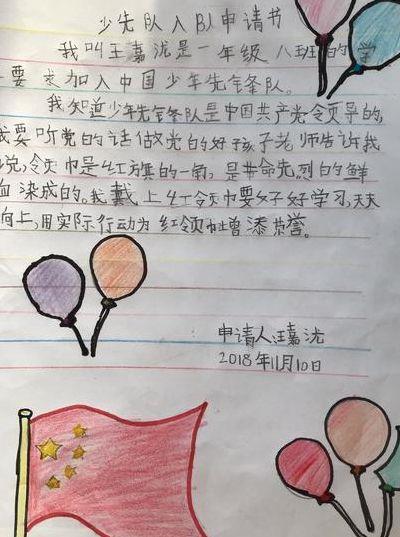 少先队入队申请书
我叫王嘉浇是一年级八班的学
要求加入中国少年先锋队。
我知道少年先锋队是中国共产党令页导的,
我要听党的话做党的好孩子老师告诉我
说,令页巾是红旗的一角,是革命先烈的鲜
血染成的。我戴上红令页巾要好好学习,天天
向上,用实际行动为红领巾增添荣誉。
申请人:王嘉浇
2018年11月10日